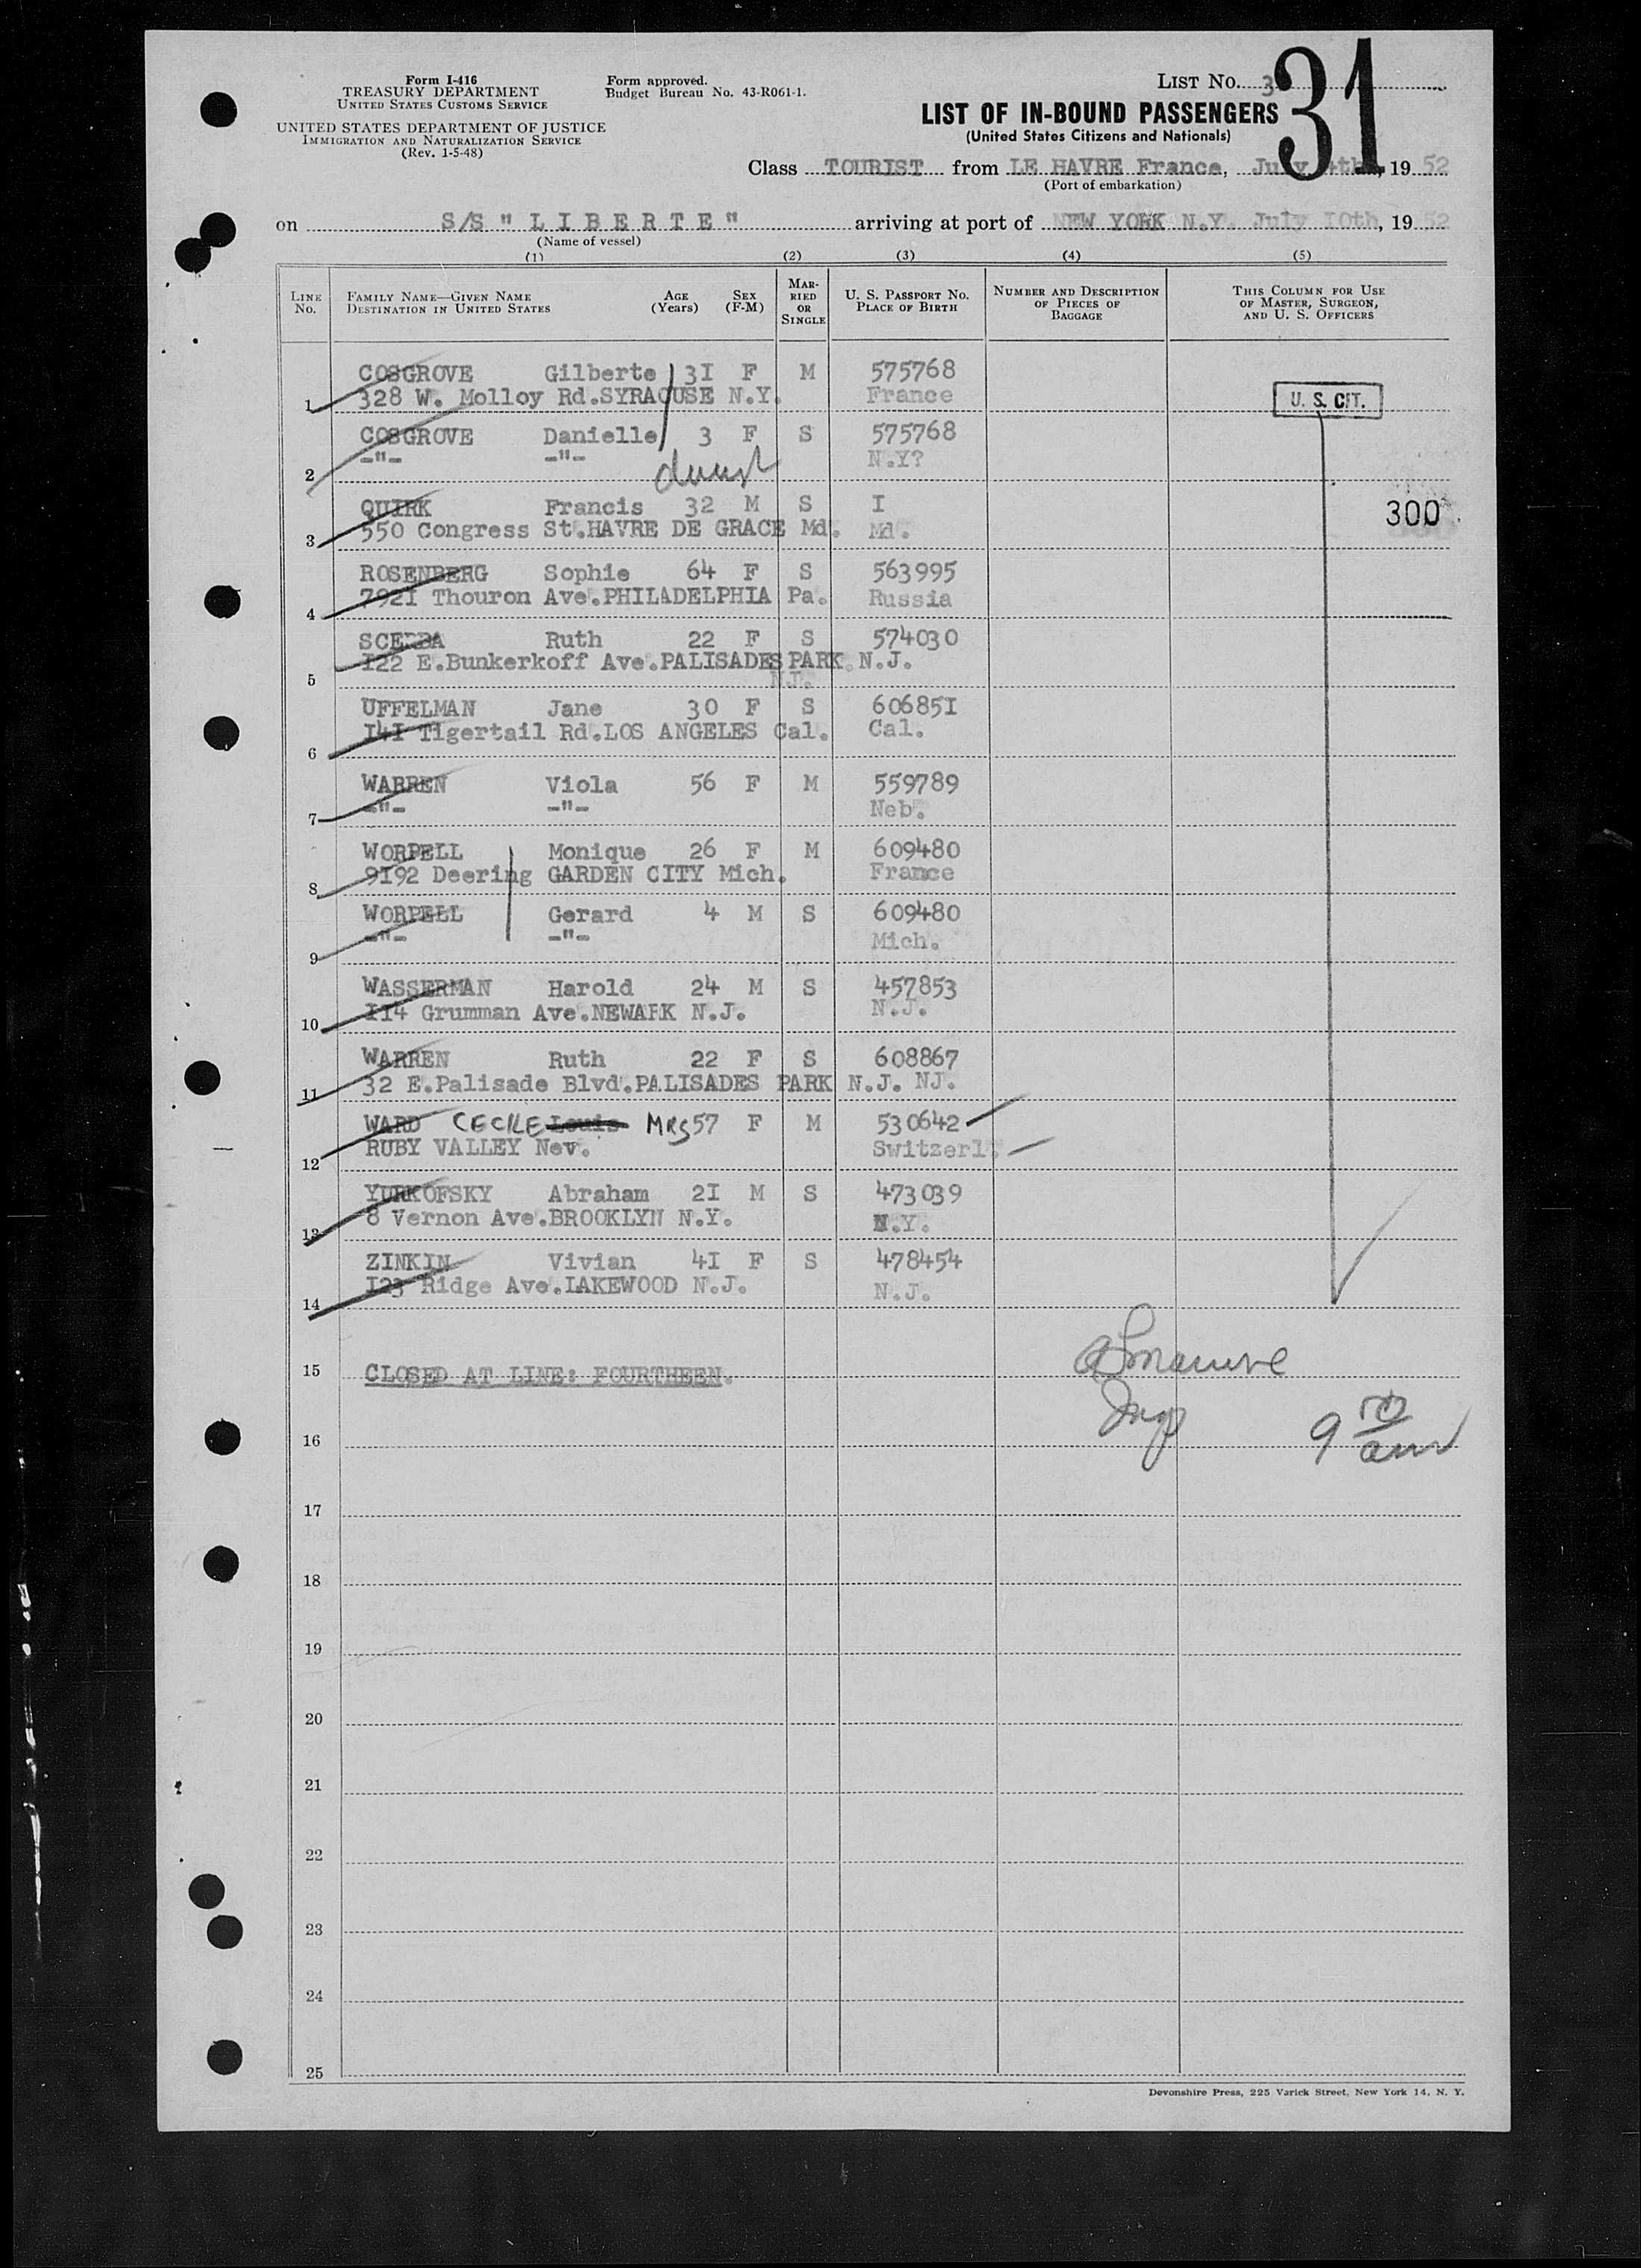 Form I-416
TREASURY DEPARTMENT
UNITED STATES CUSTOMS SERVICE
UNITED STATES DEPARTMENT OF JUSTICE
IMMIGRATION AND NATURALIZATION SERVICE
(Rev. 1-5-48)
Form approved.
Budget Bureau No. 43-R061-1.
LIST No. 3
31
LIST OF IN-BOUND PASSENGERS
(United States Citizens and Nationals)
Class TOURIST from LE HAVRE France, July 4th, 19 52
(Port of embarkation)
on S/S " L I B E R T E " arriving at port of NEW YORK N.Y. July 10th, 19 52
(Name of vessel)
(1) (2) (3) (4) (5)
LINE No. FAMILY NAME—GIVEN NAME DESTINATION IN UNITED STATES AGE (Years) SEX (F-M) MARRIED OR SINGLE U. S. PASSPORT No. PLACE OF BIRTH NUMBER AND DESCRIPTION OF PIECES OF BAGGAGE THIS COLUMN FOR USE OF MASTER, SURGEON, AND U. S. OFFICERS
COSGROVE Gilberte 3I F M 575768
1 328 W. Molloy Rd.SYRACUSE N.Y. France U. S. CIT.
COSGROVE Danielle 3 F S 575768
2 -"- -"- N.Y?
QUIRK Francis 32 M S I 300
3 550 Congress St.HAVRE DE GRACE Md. Md.
ROSENBERG Sophie 64 F S 563995
4 792I Thouron Ave.PHILADELPHIA Pa. Russia
SCERBA Ruth 22 F S 574030
I22 E.Bunkerkoff Ave.PALISADES PARK N.J.
5 NJ.
UFFELMAN Jane 30 F S 60685I
6 I4I Tigertail Rd.LOS ANGELES Cal. Cal.
WARREN Viola 56 F M 559789
7 -"- -"- Neb.
WORPELL Monique 26 F M 609480
8 9I92 Deering GARDEN CITY Mich. France
WORPELL Gerard 4 M S 609480
9 -"- -"- Mich.
WASSERMAN Harold 24 M S 457853
10 II4 Grumman Ave.NEWARK N.J. N.J.
WARREN Ruth 22 F S 608867
11 32 E.Palisade Blvd.PALISADES PARK N.J. NJ.
WARD CECILE Louis MRS 57 F M 530642
12 RUBY VALLEY Nev. Switzerl.
YURKOFSKY Abraham 2I M S 473039
13 8 Vernon Ave.BROOKLYN N.Y. N.Y.
ZINKIN Vivian 4I F S 478454
14 I23 Ridge Ave.LAKEWOOD N.J. N.J.
15 CLOSED AT LINE: FOURTHEEN.
16 9 am
17
18
19
20
21
22
23
24
25
Devonshire Press, 225 Varick Street, New York 14, N. Y.